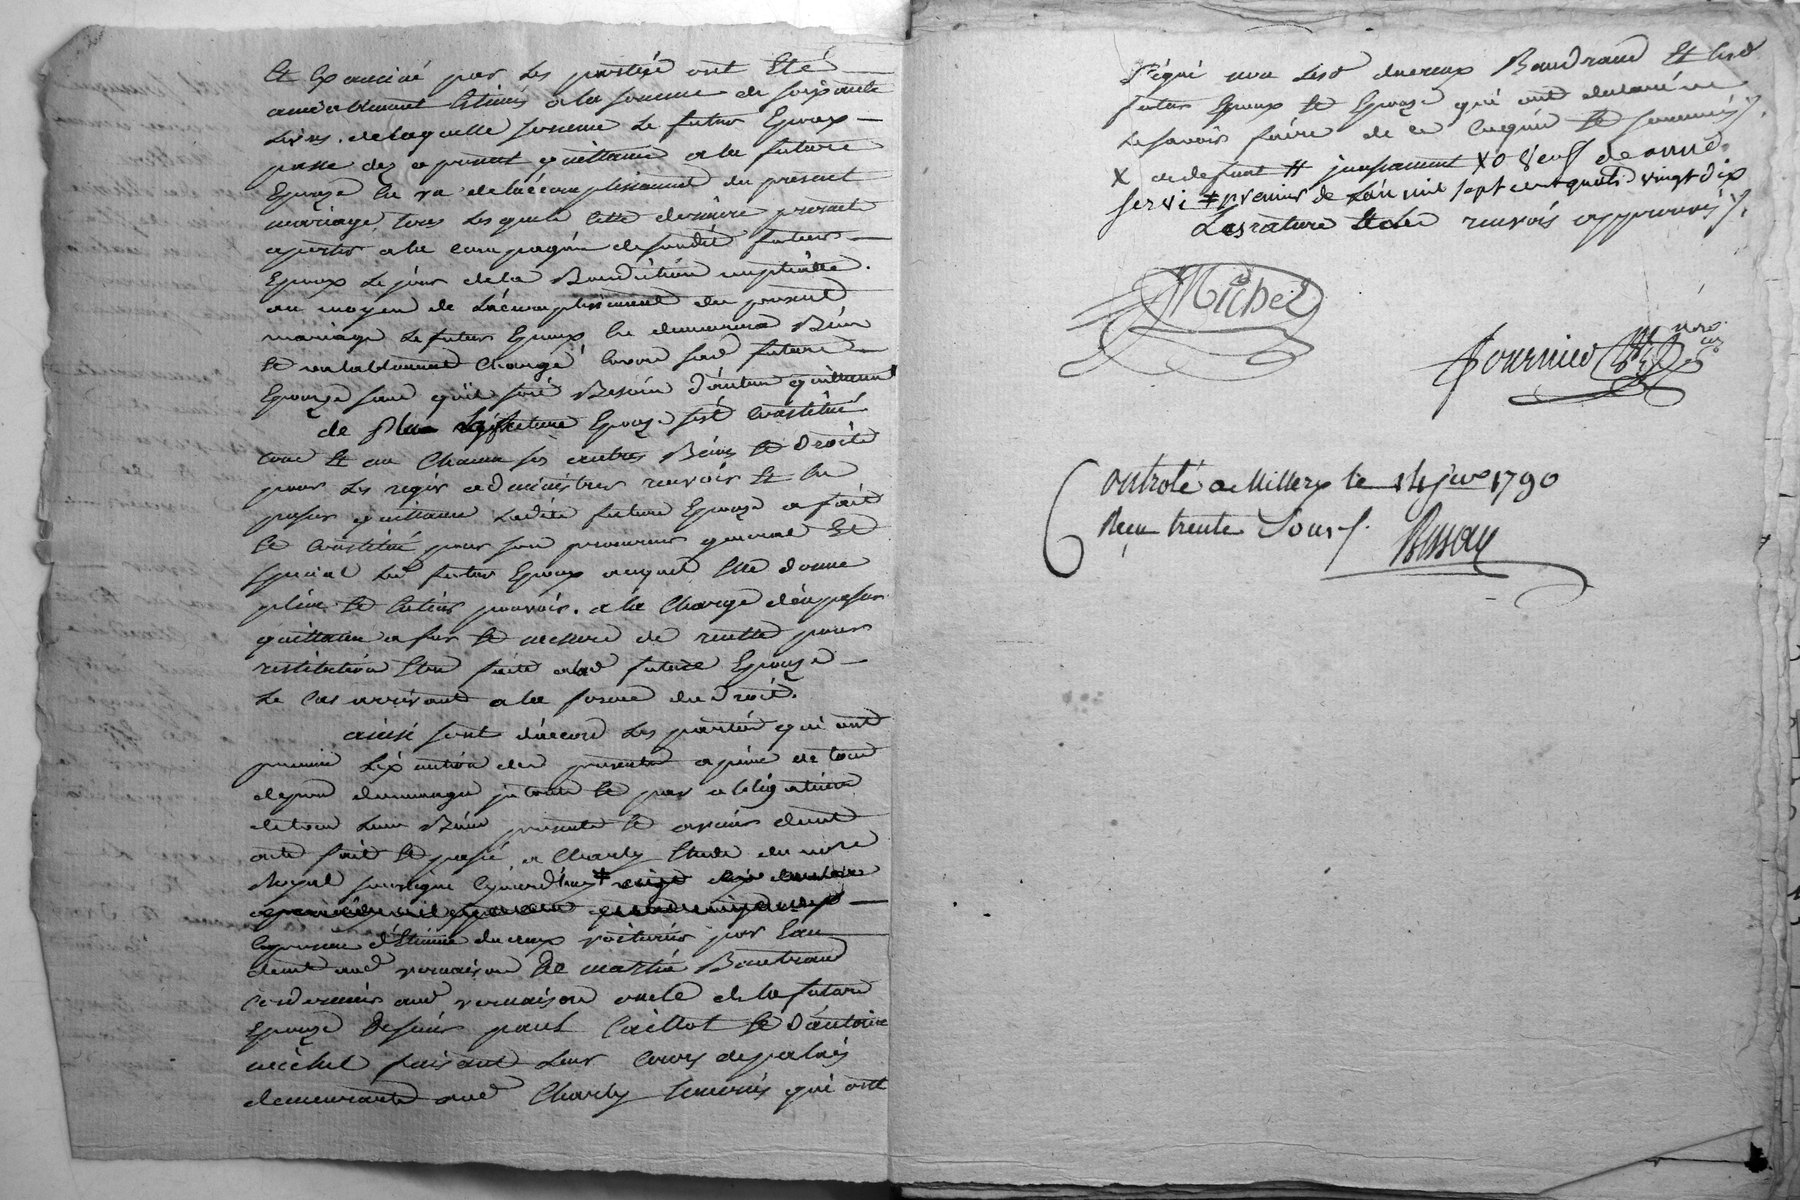 Et Examiné par les parties ont Eté
amiablement Estimés a la somme de soixante
Livres. de laquelle somme le futur Epoux
passe des a present quittance a la future
Epouse En vû de l'accomplissement du present
mariage, tous lesquels cette derniere promet
aporter a la compagnie de sondit futur
Epoux le jour de la Benediction nuptialle.
au moyen de l'accomplissement du present
mariage le futur Epoux En demeurera Bien
Et valablement Chargé Envers sad future
Epouse sans qu'il soit Besoin d'autre quittance
de plus la future Epouse s'est Constitué
tous Et un Chacun ses autres Biens Et Droits
pour les regir administrer recevoir Et En
passer quittance ladite future Epouse a fait
Et Constitué pour son procureur general Et
special led futur Epoux auquel Elle donne
plein Et Entier pouvoir. a la Charge d'en passer
quittance a fur Et mesure de recette pour
restitution Etre faite alad future Epouse
le Cas arrivant a la forme du Droit.
ainsi sont d'accord les parties qui ont
promis l'exécution des presentes a peine de tous
depens dommages interets Et par obligation
de tous leurs Biens presents Et avenir dont
acte fait Et passé a Charly Etude du no.re
Royal soussigné Cejourd'huy #
En presence d'Etienne ducreux voiturier par Eau
demt aud vernaison De martin Bautrand
Cordonnier aud vernaison oncle de la future
Epouse De sieurs paul Caillot Et d'antoine
michel faisant leur Cours de palais
demeurants aud Charly temoins qui ont
signé non lesd ducreux Baudrand Et lesd
futurs Epoux Et Epouse qui ont declaré ne
le savoir faire de ce Enquis Et sommés
X de defunt # X
# premier de l'an mil sept cent quatre vingt dix
Les rature Et des renvois approuvés
Michel
Fournier
Controlé a Millery le 14 jer 1790
Reçu trente Sous